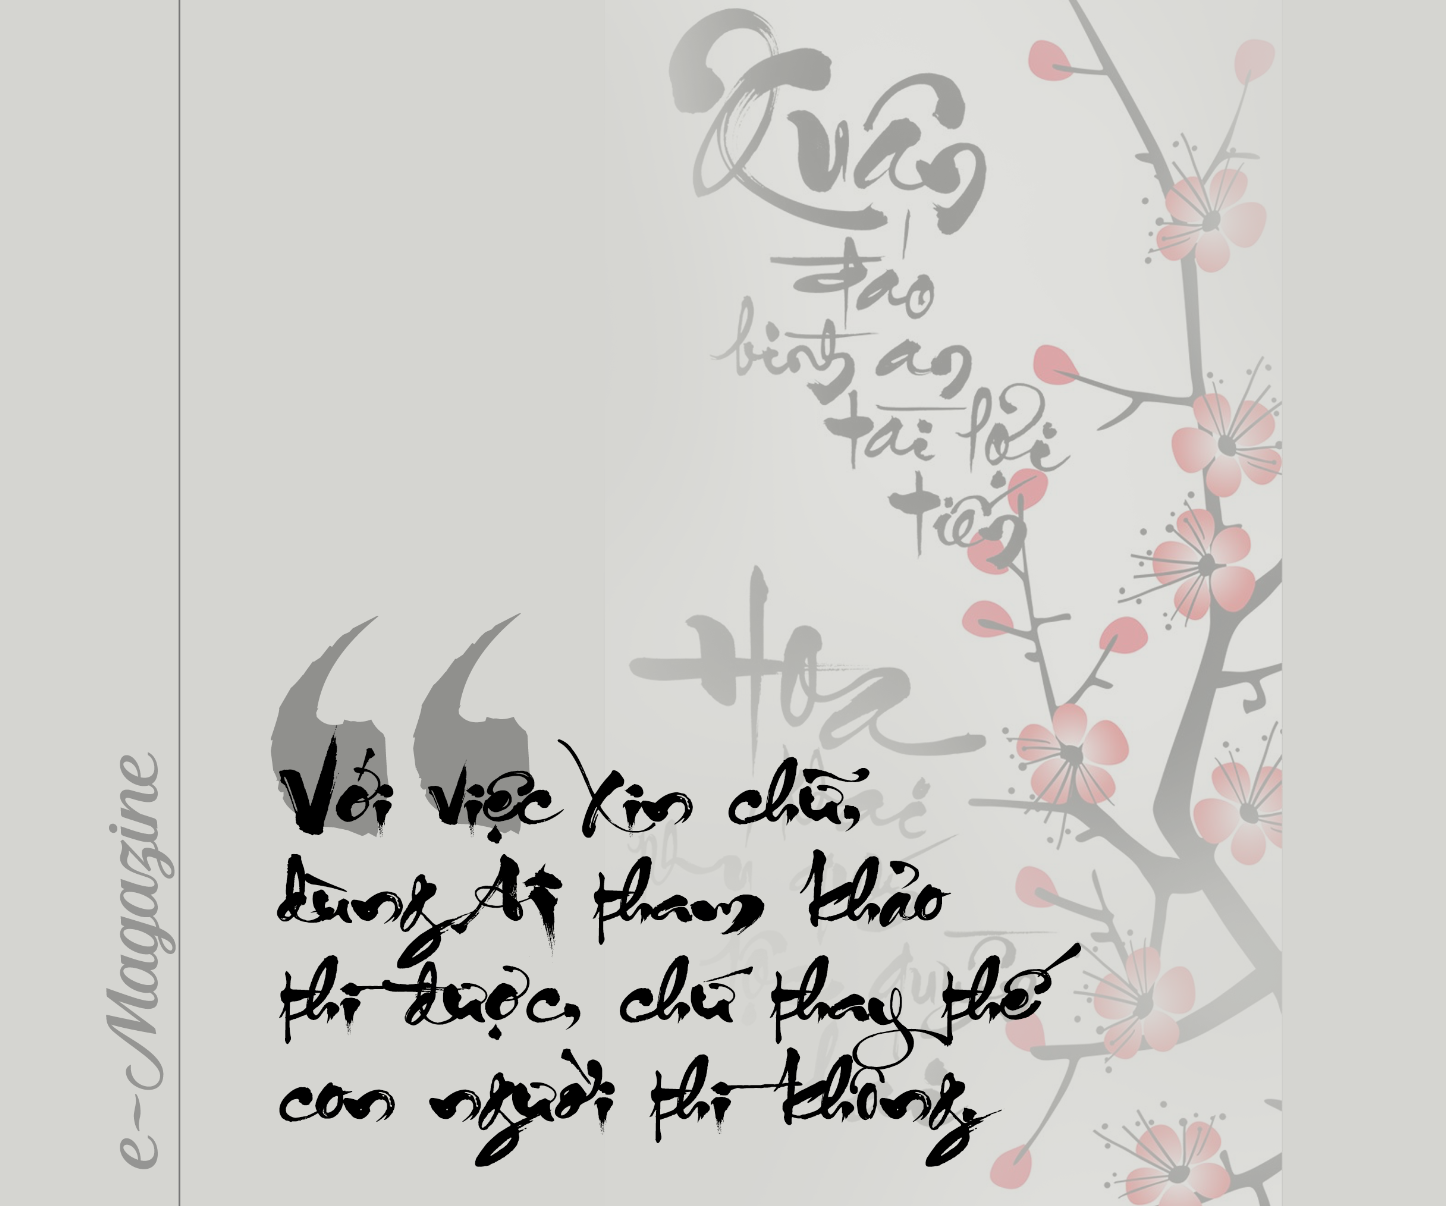 Xuân
đáo
bình an
tài lởi
tiến
Hoa
e-Magazine
Với việc xin chữ,
dùng AI tham khảo
thì được, chứ thay thế
con người thì không.